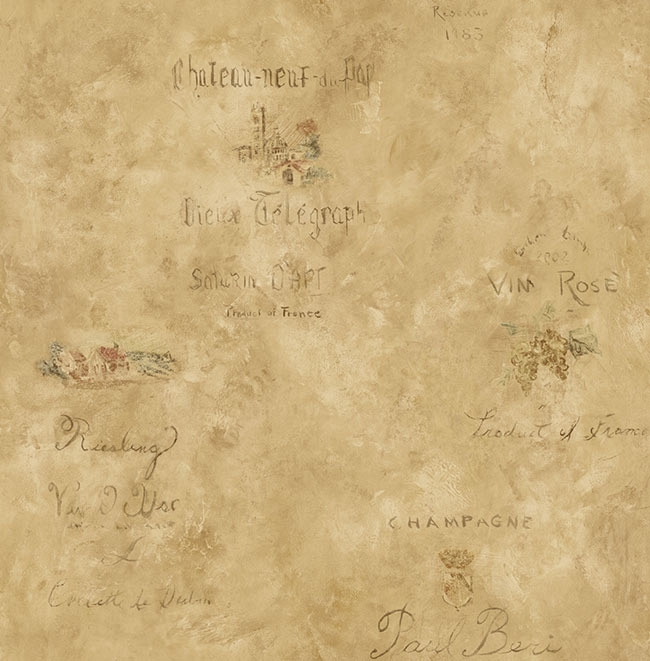 Reserve
1983
Chateau-neuf-du-Pap
Vieux Télégraph
Saturin D'APT
Product of France
2002
VIN ROSÉ
Product of France
Riesling
CHAMPAGNE
Paul Beri